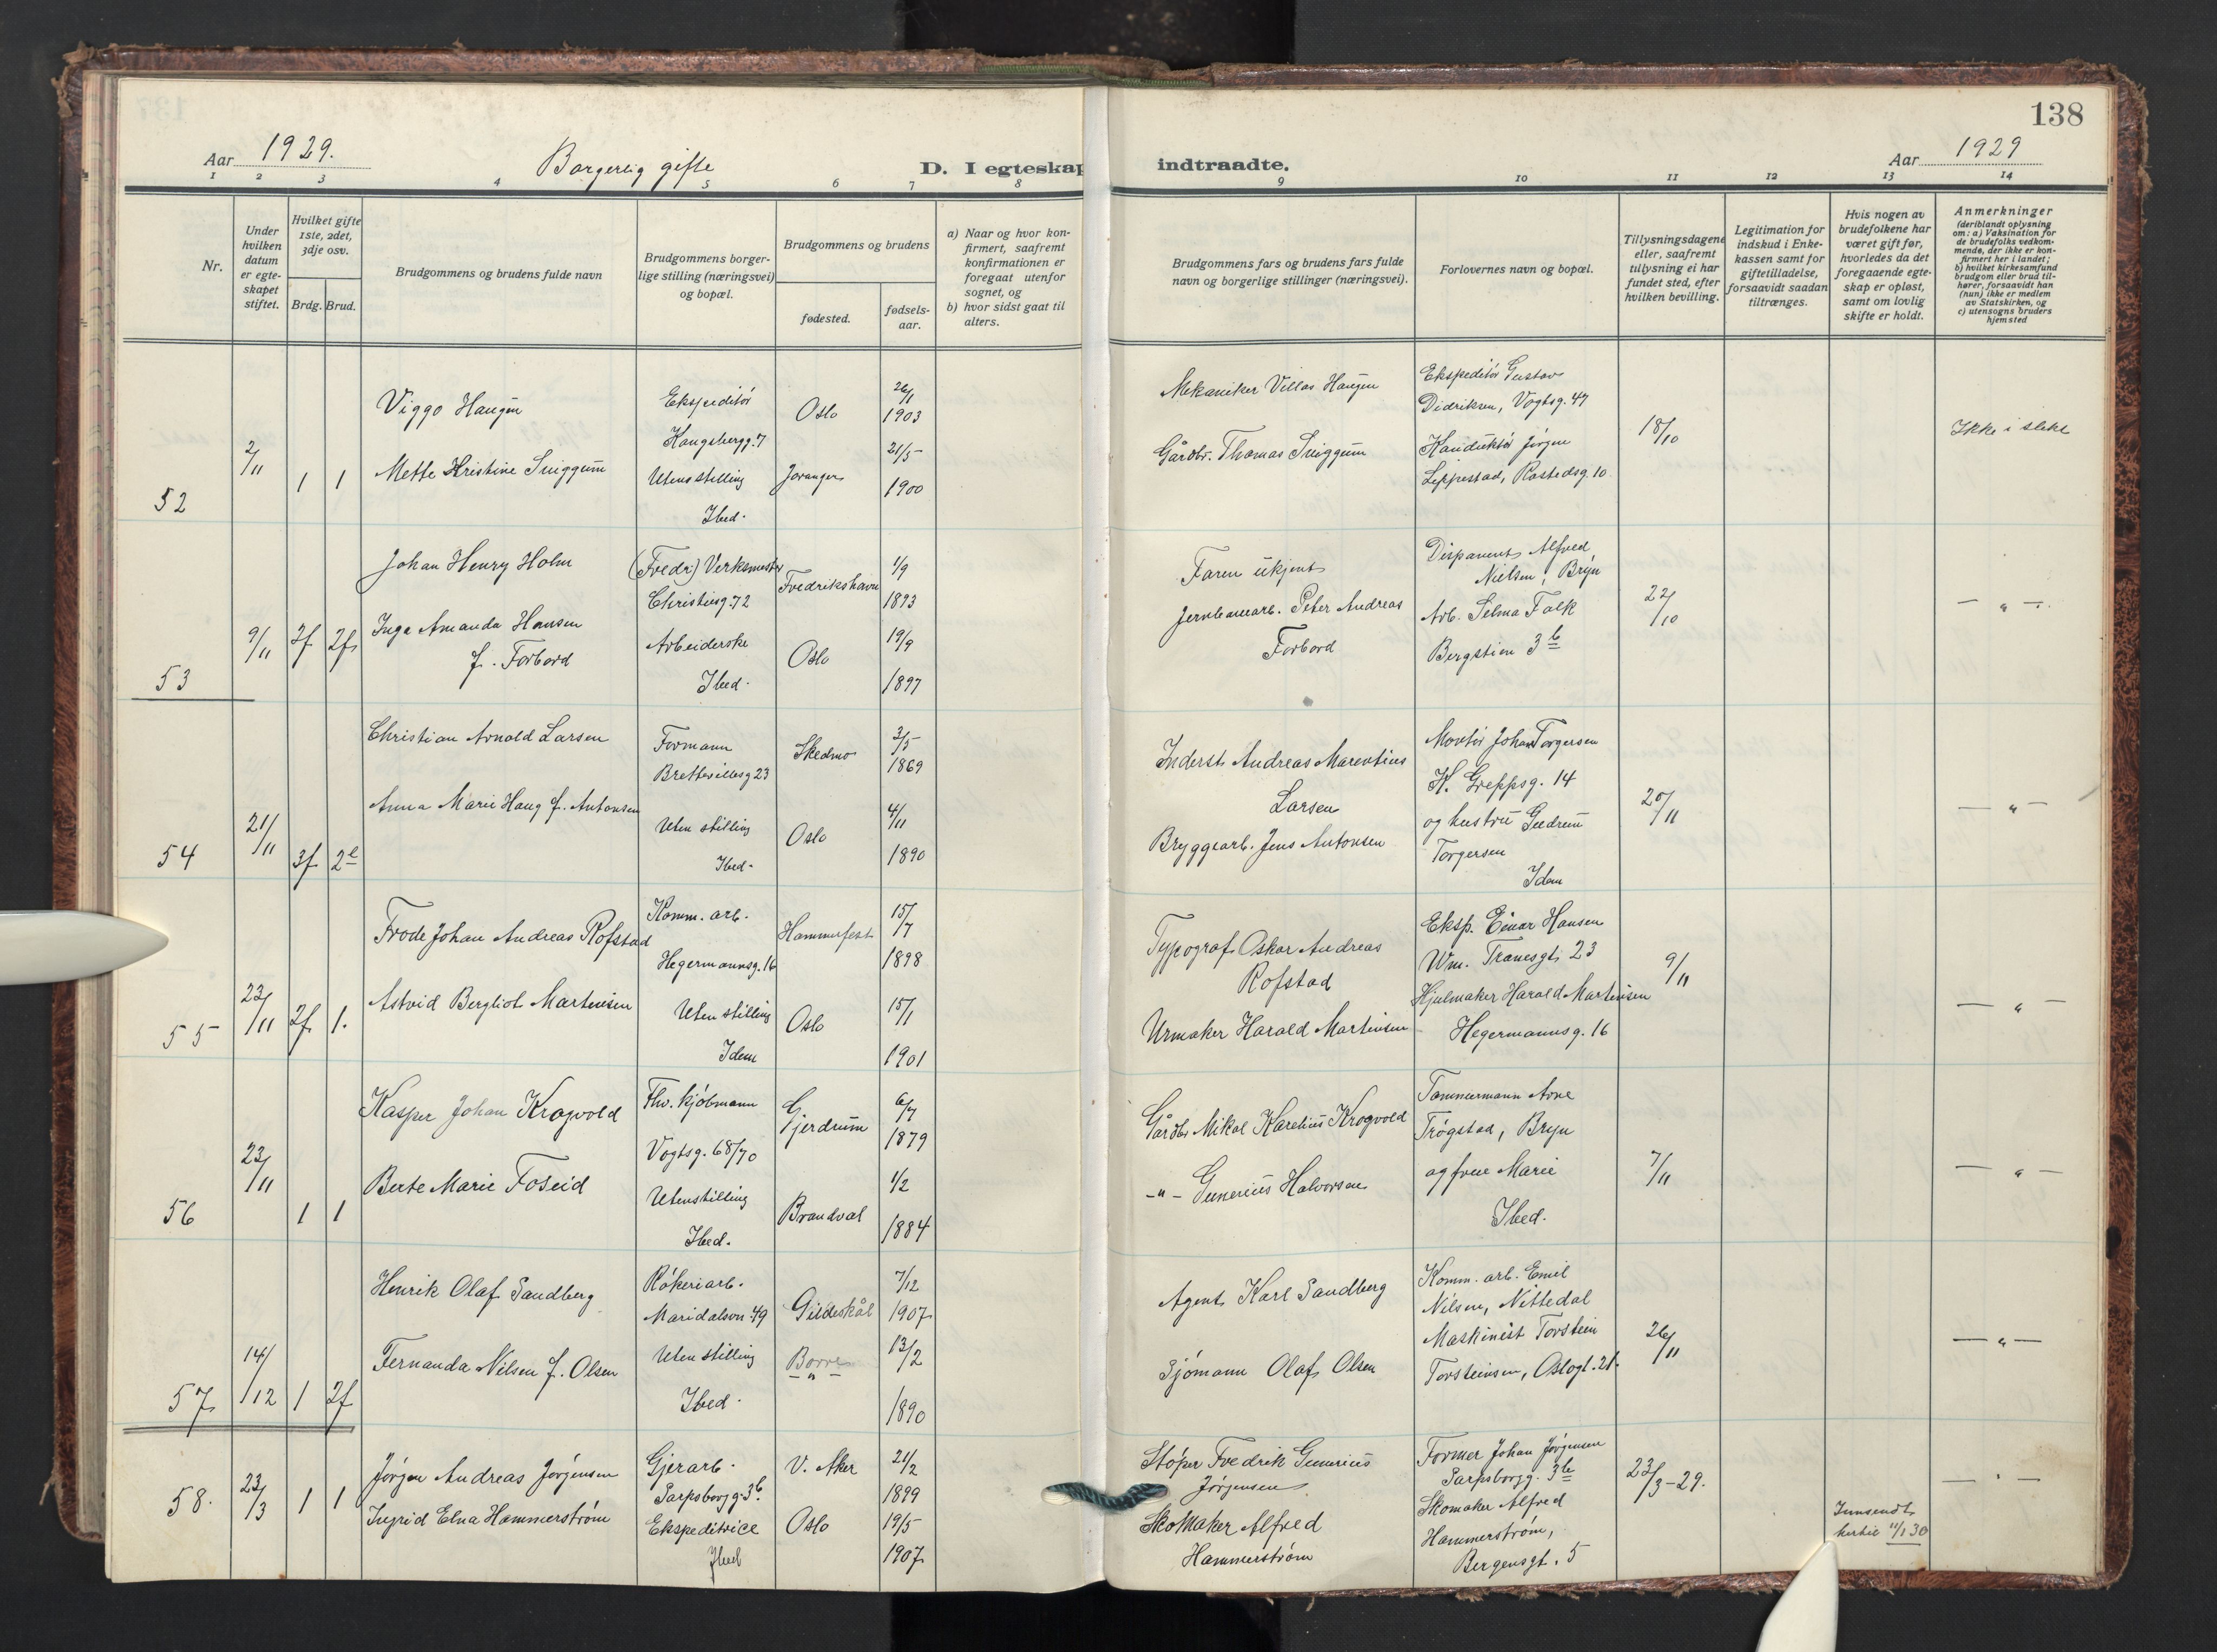 138
Aar 1929.
Borgerlig gifte
D. I egteskap
indtraadte.
Aar 1929
1 2 3 4 5 6 7 8 9 10 11 12 13 14
Nr.
Under
hvilken
datum
er egte-
skapet
stiftet.
Hvilket gifte
1ste, 2det,
3dje osv.
Brdg. Brud.
Brudgommens og brudens fulde navn
Brudgommens borger-
lige stilling (næringsvei)
og bopæl.
Brudgommens og brudens
fødested.
fødsels-
aar.
a) Naar og hvor kon-
firmert, saafremt
konfirmationen er
foregaat utenfor
sognet, og
b) hvor sidst gaat til
alters.
Brudgommens fars og brudens fars fulde
navn og borgerlige stillinger (næringsvei).
Forlovernes navn og bopæl.
Tillysningsdagene
eller, saafremt
tillysning ei har
fundet sted, efter
hvilken bevilling.
Legitimation for
indskud i Enke-
kassen samt for
giftetilladelse,
forsaavidt saadan
tiltrænges.
Hvis nogen av
brudefolkene har
været gift før,
hvorledes da det
foregaaende egte-
skap er opløst,
samt om lovlig
skifte er holdt.
Anmerkninger
(deriblandt oplysning
om: a) Vaksination for
de brudefolks vedkom-
mende, der ikke er kon-
firmert her i landet;
b) hvilket kirkesamfund
brudgom eller brud til-
hører, forsaavidt han
(hun) ikke er medlem
av Statskirken, og
c) utensogns bruders
hjemsted
52
2/11
1 1
Viggo Haugen
Mette Kristine Sniggum
Ekspeditør
Kongsbergg. 7
Uten stilling
Ibid.
Oslo
Joranger
26/1
1903
21/5
1900
Mekaniker Villas Haugen
Gårdbr. Thomas Sniggum
Ekspeditør Gustav
Didriksen, Vogtsg. 49
Konduktør Jørgen
Leppestad, Rostedsg. 10
18/10
Ikke i slekt
53
9/11
2f 2f
Johan Henry Holm
Inga Amanda Hansen
f. Forbord
(Fredr.) Verksmester
Christiesg. 72
Arbeiderske
Ibid.
Fredrikshavn
Oslo
1/9
1893
19/9
1897
Faren ukjent
Jernbanearb. Peter Andreas
Forbord
Disponent Alfred
Nielsen, Bryn
Arb. Selma Falk
Bergstien 3 b
22/10
— " —
54
21/11
3f 2e
Christian Arnold Larsen
Anna Marie Haug f. Antonsen
Formann
Brettevillesg 23
Uten stilling
Ibid.
Skedmo
Oslo
3/5
1869
4/11
1890
Inderst Andreas Marentius
Larsen
Bryggearb. Jens Antonsen
Montør Johan Torgersen
K. Greppsg. 14
og hustru Gudrun
Torgersen
Idem
20/11
— " —
55
23/11
2f 1.
Frode Johan Andreas Rofstad
Astrid Bergliot Martinsen
Komm. arb.
Hegermannsg. 16
Uten stilling
Idem
Hammerfest
Oslo
15/7
1898
15/1
1901
Typograf Oskar Andreas
Rofstad
Urmaker Harald Martinsen
Eksp. Einar Hansen
Wm. Tranesgt 23
Hjulmaker Harald Martinsen
Hegermannsg. 16
9/11
— " —
56
23/11
1 1
Kasper Johan Krogvold
Berte Marie Foseid
Fhv. kjøbmann
Vogtsg. 68/70
Uten stilling
Ibid.
Gjerdrum
Brandval
6/7
1879
1/2
1884
Gårdbr Mikal Karelius Krogvold
-"- Gunerius Halvorsen
Tømmermann Arne
Trøgstad, Bryn
og frue Marie
Ibid.
7/11
— " —
57
14/12
1 2f
Henrik Olaf Sandberg
Fernanda Nilsen f. Olsen
Røkeriarb.
Maridalsvn 49
Uten stilling
Ibid.
Gildeskål
Borre
— " —
7/12
1907
13/2
1890
Agent Karl Sandberg
Sjømann Olaf Olsen
Komm. arb. Emil
Nilsen, Nittedal
Maskinist Torstein
Torsteinsen, Oslogt. 21.
26/11
— " —
58.
23/3
1 1
Jørgen Andreas Jørgensen
Ingrid Elna Hammerstrøm
Gjerarb.
Sarpsborgg. 3 b.
Ekspeditrice
Ibid
V. Aker
Oslo
21/2
1899
19/5
1907
Støper Fredrik Gunerius
Jørgensen
Skomaker Alfred
Hammerstrøm
Former Johan Jørgensen
Sarpsborgg. 3 b
Skomaker Alfred
Hammerstrøm,
Bergensgt. 5
23/3-29.
Innsendt
11/1 30
— " —